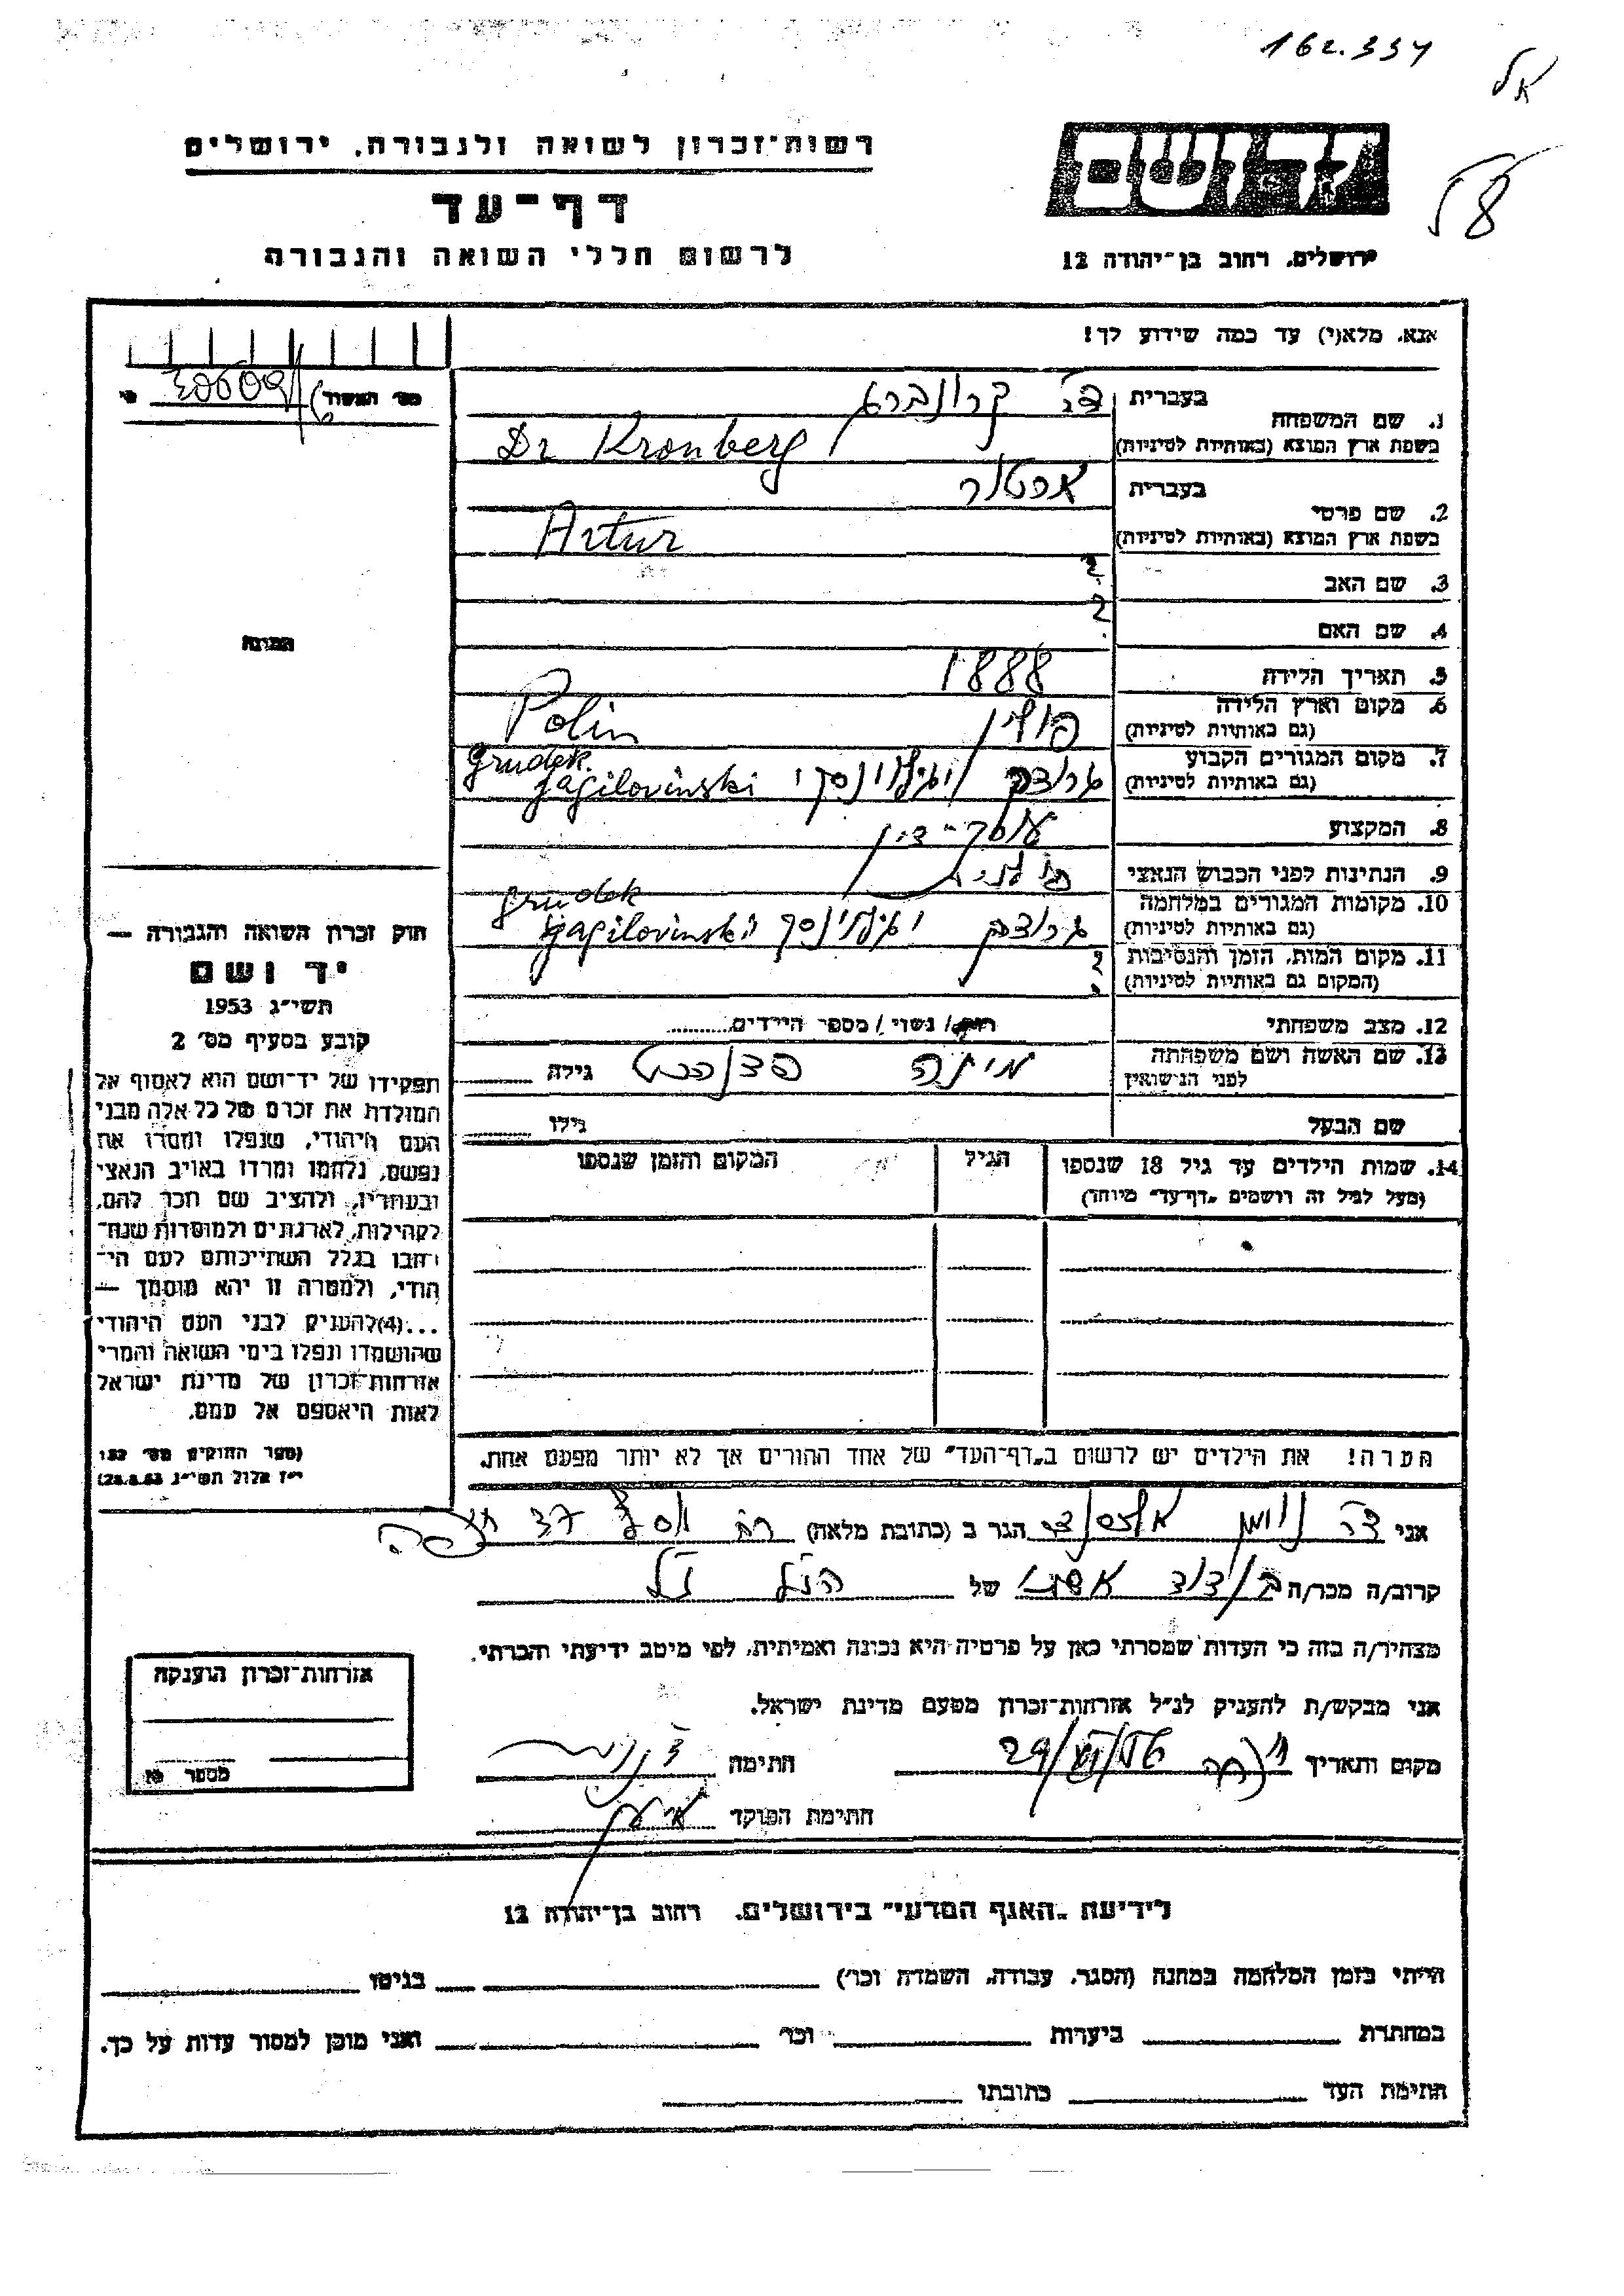 162.334
אל
רשות־זכרון לשואה ולגבורה, ירושלים
דף־עד
לרשום חללי השואה והגבורה
ירושלים, רחוב בן־יהודה 12
אנא, מלא(י) עד כמה שידוע לך!
1. שם המשפחה
בעברית ד״ר קרונברג
בשפת ארץ המוצא (באותיות לטיניות) Dr Kronberg
2. שם פרטי
בעברית ארטור
בשפת ארץ המוצא (באותיות לטיניות) Artur
3. שם האב ?
4. שם האם ?
5. תאריך הלידה 1888
6. מקום וארץ הלידה
(גם באותיות לטיניות) פולין Polin
7. מקום המגורים הקבוע
(גם באותיות לטיניות) גרודק יגילובינסקי Grudek Jagilovinski
8. המקצוע עורך־דין
9. הנתינות לפני הכבוש הנאצי פולנית
10. מקומות המגורים במלחמה
(גם באותיות לטיניות) גרודק יגילובינסקי Grudek Jagilovinski
11. מקום המות, הזמן והנסיבות ?
(המקום גם באותיות לטיניות)
12. מצב משפחתי רווק/ נשוי/ מספר הילדים
13. שם האשה ושם משפחתה
לפני הנישואין גילה
שם הבעל גילו
14. שמות הילדים עד גיל 18 שנספו
(מעל לגיל זה רושמים „דף־עד״ מיוחד)
הגיל
המקום והזמן שנספו
הערה! את הילדים יש לרשום ב„דף־העד״ של אחד ההורים אך לא יותר מפעם אחת.
התמונה
חוק זכרון השואה והגבורה —
יד ושם
תשי״ג 1953
קובע בסעיף מס׳ 2
תפקידו של יד־ושם הוא לאסוף אל
המולדת את זכרם של כל אלה מבני
העם היהודי, שנפלו ומסרו את
נפשם, נלחמו ומרדו באויב הנאצי
ובעוזריו, ולהציב שם וזכר להם,
לקהילות, לארגונים ולמוסדות שנח־
רבו בגלל השתייכותם לעם הי־
הודי, ולמטרה זו יהא מוסמך —
...(4)להעניק לבני העם היהודי
שהושמדו ונפלו בימי השואה והמרי
אזרחות־זכרון של מדינת ישראל
לאות היאספם אל עמם.
(ספר החוקים מס׳ 132
י״ז אלול תשי״ג 28.8.53)
אני ד״ר נוימן אלכסנדר הגר ב (כתובת מלאה) 37 חיפה
קרוב/ה מכר/ה בן דוד אשתו של הנ״ל ז״ל
מצהיר/ה בזה כי העדות שמסרתי כאן על פרטיה היא נכונה ואמיתית, לפי מיטב ידיעתי והכרתי.
אני מבקש/ת להעניק לנ״ל אזרחות־זכרון מטעם מדינת ישראל.
מקום ותאריך חיפה חתימה
חתימת הפוקד
אזרחות־זכרון הוענקה
לידיעת „האגף המדעי״ בירושלים, רחוב בן־יהודה 12
הייתי בזמן המלחמה במחנה (הסגר, עבודה, השמדה וכו׳) בגיטו
במחתרת ביערות וכו׳ ואני מוכן למסור עדות על כך.
חתימת העד כתובתו